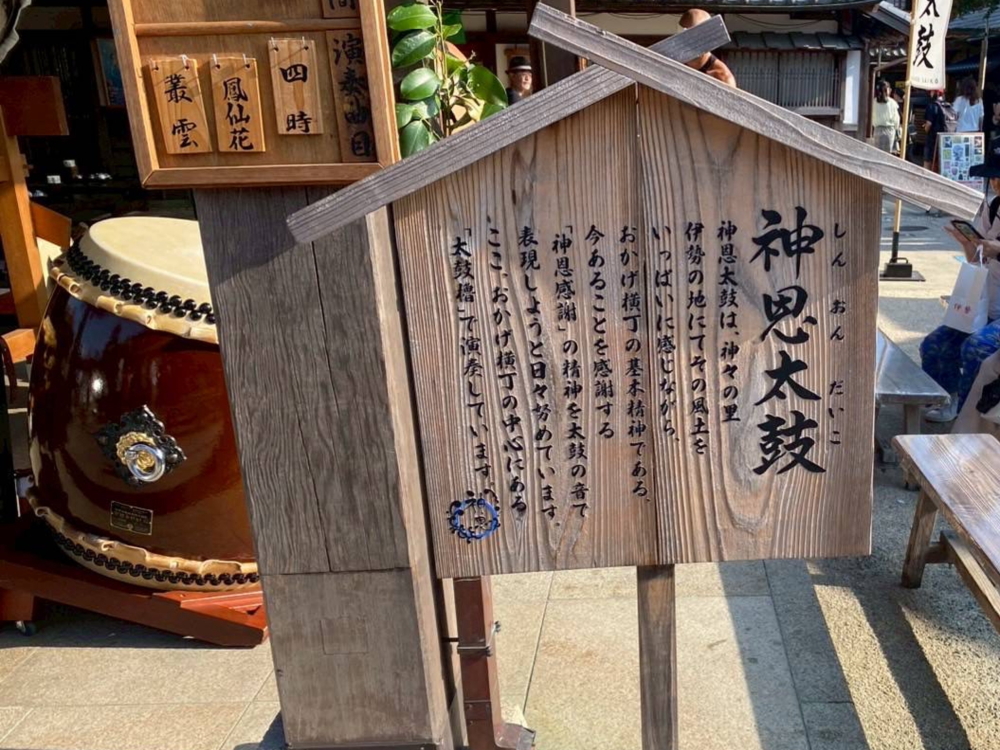 しんおんだいこ
神恩太鼓
神恩太鼓は、神々の里
伊勢の地にてその風土を
いっぱいに感じながら、
おかげ横丁の基本精神である、
今あることを感謝する
「神恩感謝」の精神を太鼓の音で
表現しようと日々努めています。
ここ、おかげ横丁の中心にある
「太鼓櫓」で演奏しています。
演奏曲目
四時
鳳仙花
叢雲
太鼓